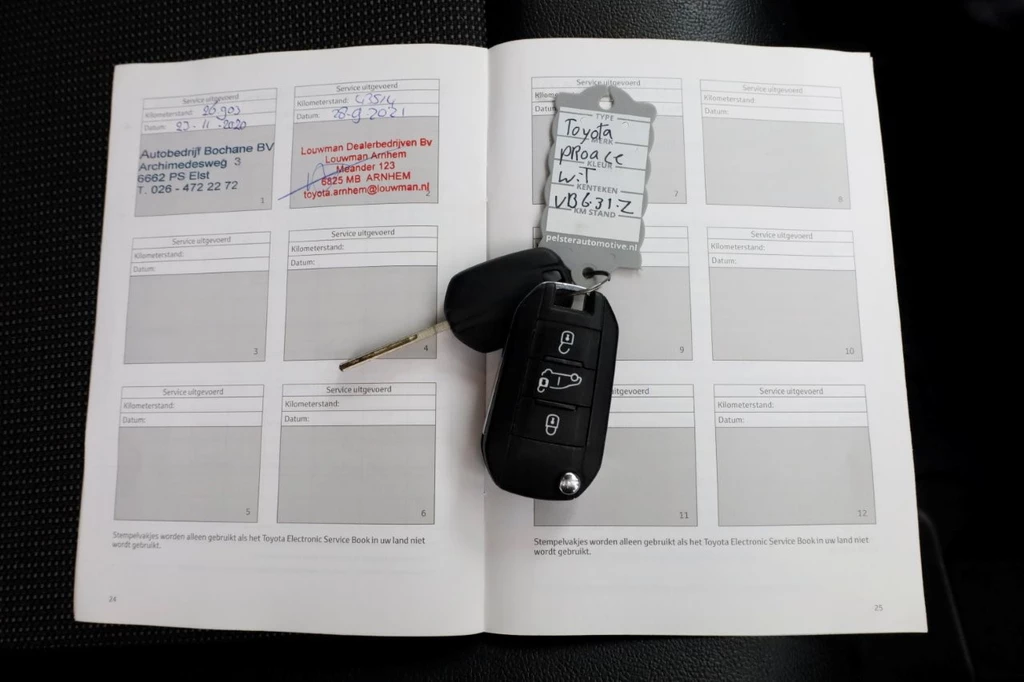 Service uitgevoerd
Kilometerstand: 26.903
Datum: 23-11-2020
Autobedrijf Bochane BV
Archimedesweg 3
6662 PS Elst
T. 026 - 472 22 72
1
Service uitgevoerd
Kilometerstand: 43514
Datum: 28-9-2021
Louwman Dealerbedrijven Bv
Louwman Arnhem
Meander 123
6825 MB ARNHEM
toyota.arnhem@louwman.nl
2
Service uitgevoerd
Kilometerstand:
Datum:
3
Service uitgevoerd
Kilometerstand:
Datum:
4
Service uitgevoerd
Kilometerstand:
Datum:
5
Service uitgevoerd
Kilometerstand:
Datum:
6
Stempelvakjes worden alleen gebruikt als het Toyota Electronic Service Book in uw land niet
wordt gebruikt.
24
Service uitgevoerd
7
TYPE
Toyota
MERK
PROACE
KLEUR
WIT
KENTEKEN
VBG-31-Z
KM STAND
pelsterautomotive.nl
Service uitgevoerd
Kilometerstand:
Datum:
8
9
Service uitgevoerd
Kilometerstand:
Datum:
10
Service uitgevoerd
11
Service uitgevoerd
Kilometerstand:
Datum:
12
Stempelvakjes worden alleen gebruikt als het Toyota Electronic Service Book in uw land niet
wordt gebruikt.
25